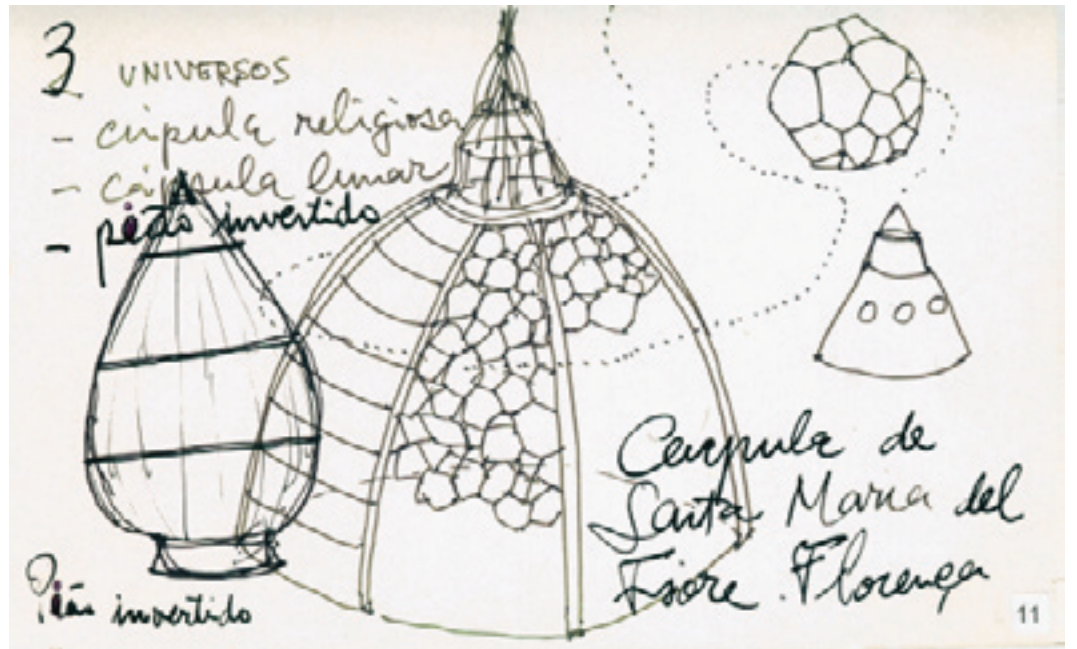 3 UNIVERSOS
- cúpula religiosa
- cápsula lunar
- pião invertido
Cúpula de
Santa Maria del
Fiore. Florença
Pião invertido
11